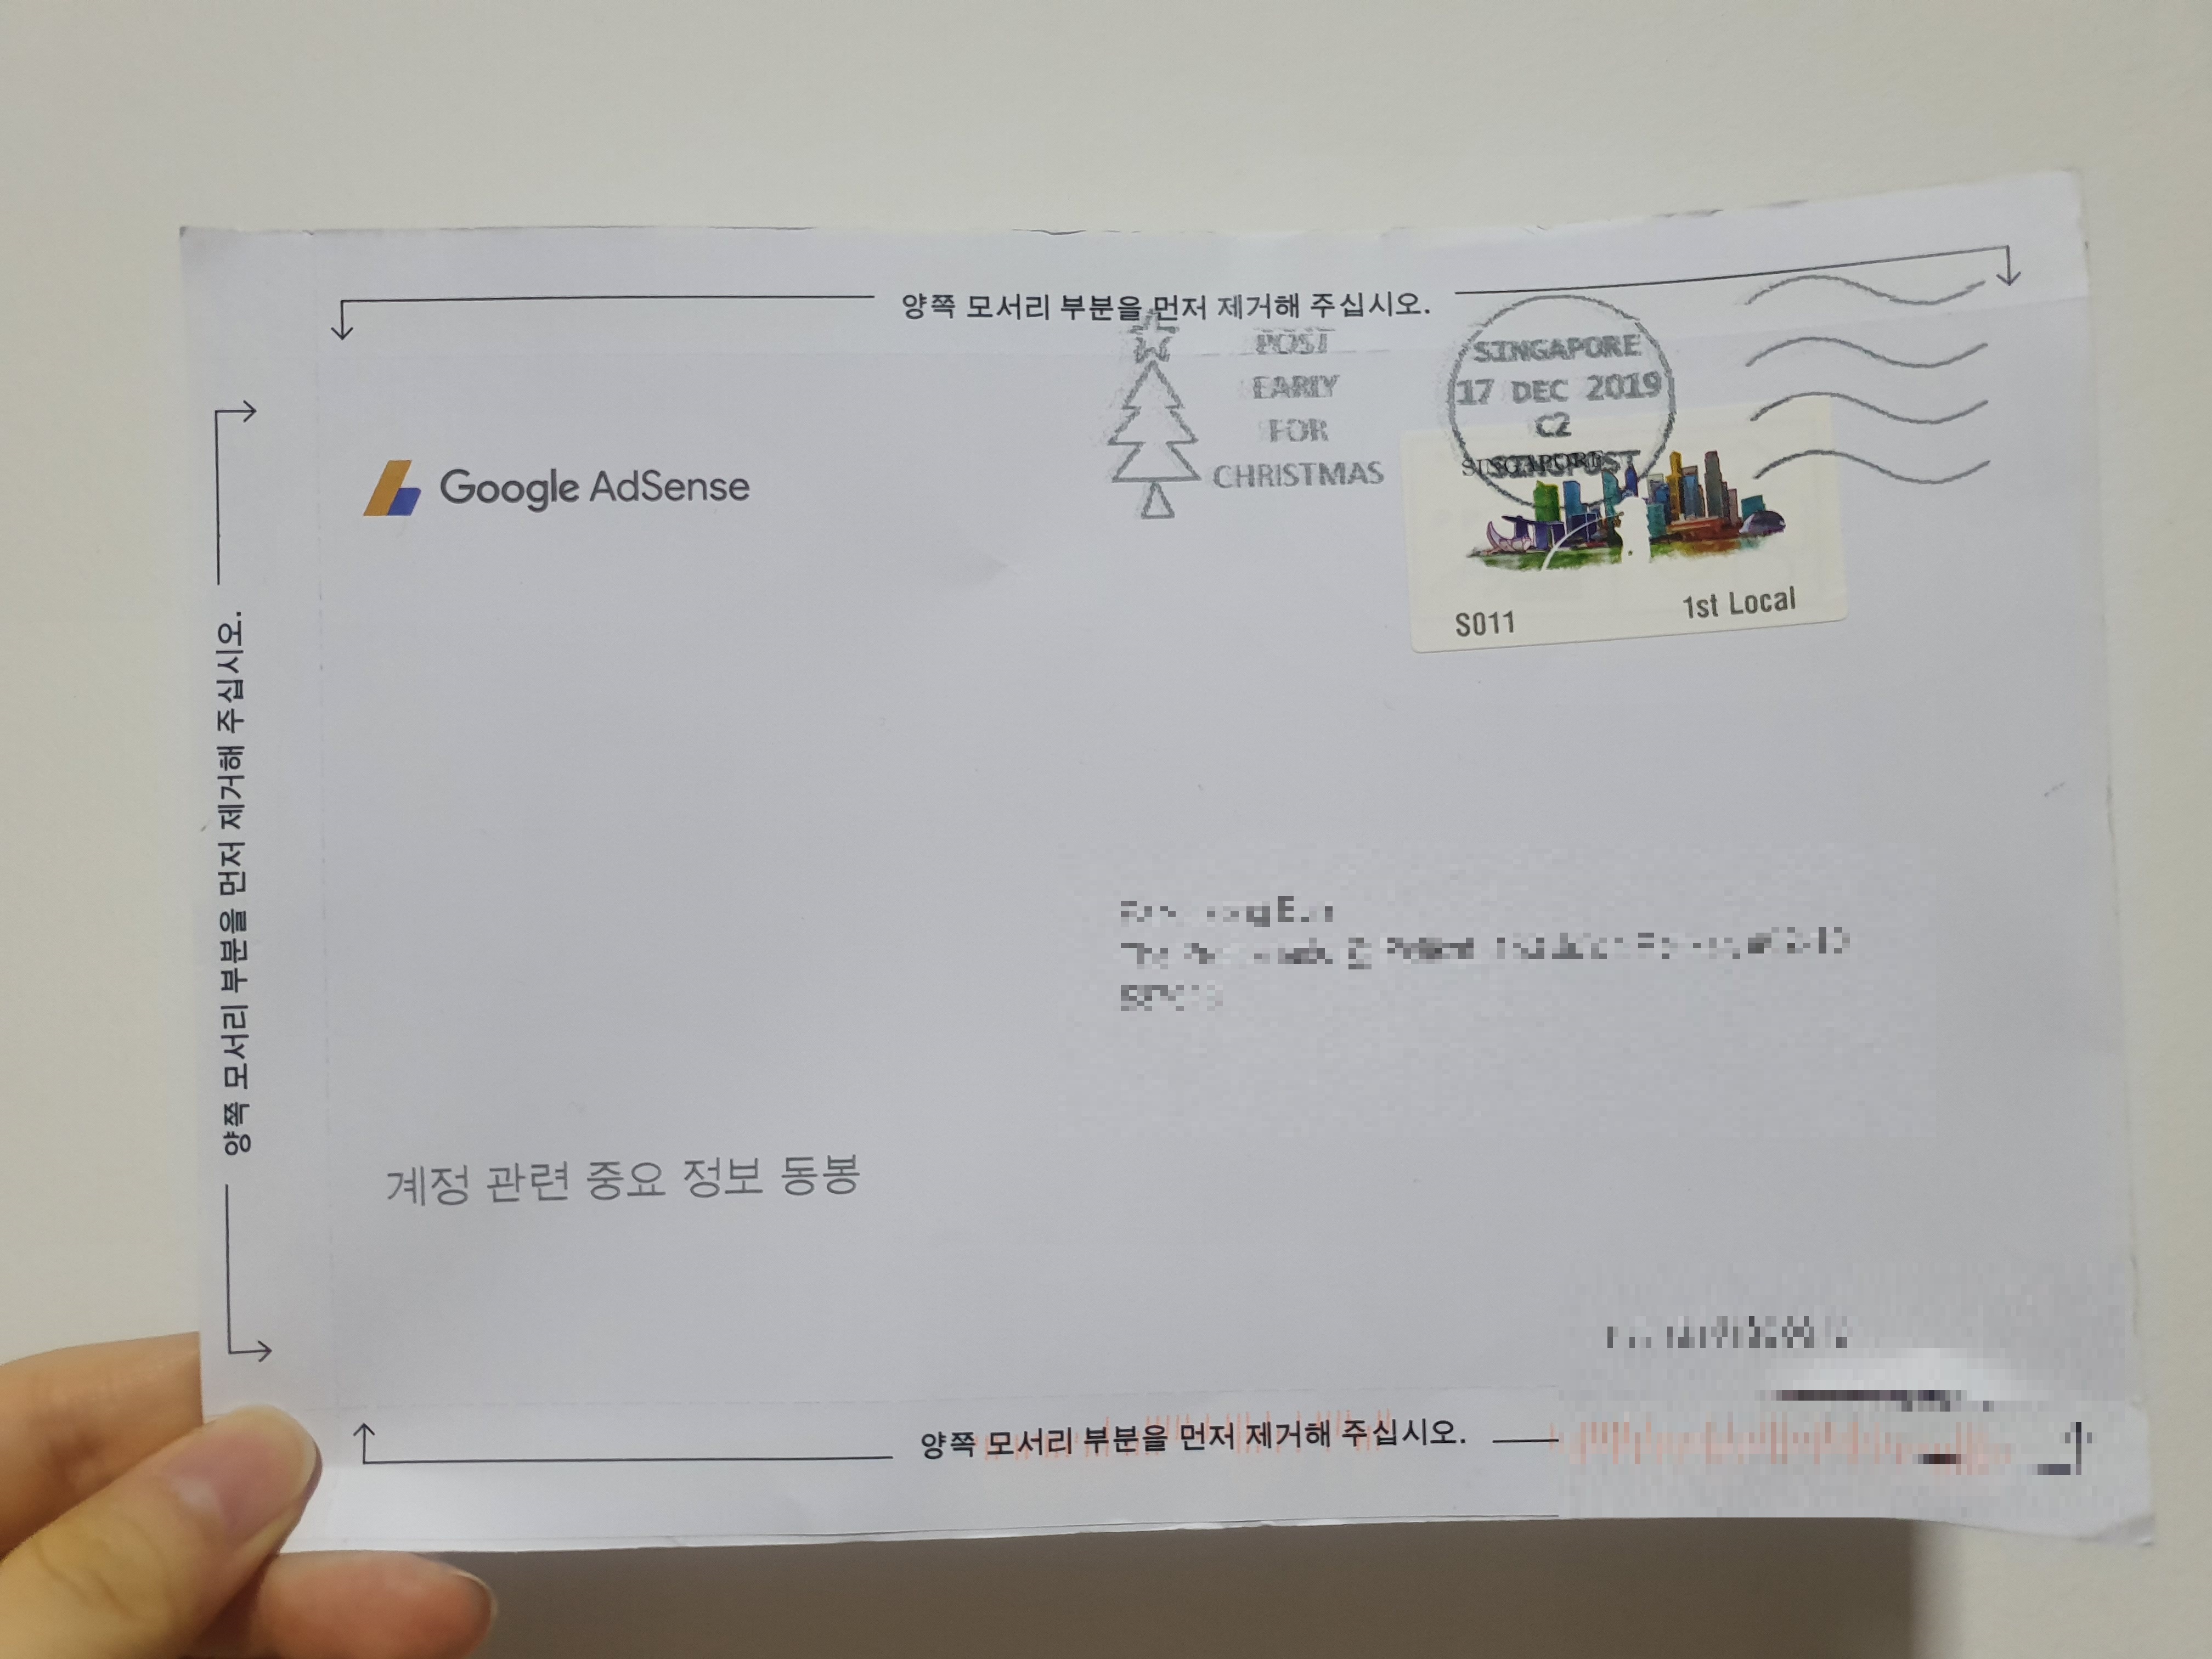 양쪽 모서리 부분을 먼저 제거해 주십시오.
POST
EARLY
FOR
CHRISTMAS
SINGAPORE
17 DEC 2019
C2
SINGPOST
SINGAPORE
S011
1st Local
Google AdSense
양쪽 모서리 부분을 먼저 제거해 주십시오.
계정 관련 중요 정보 동봉
양쪽 모서리 부분을 먼저 제거해 주십시오.